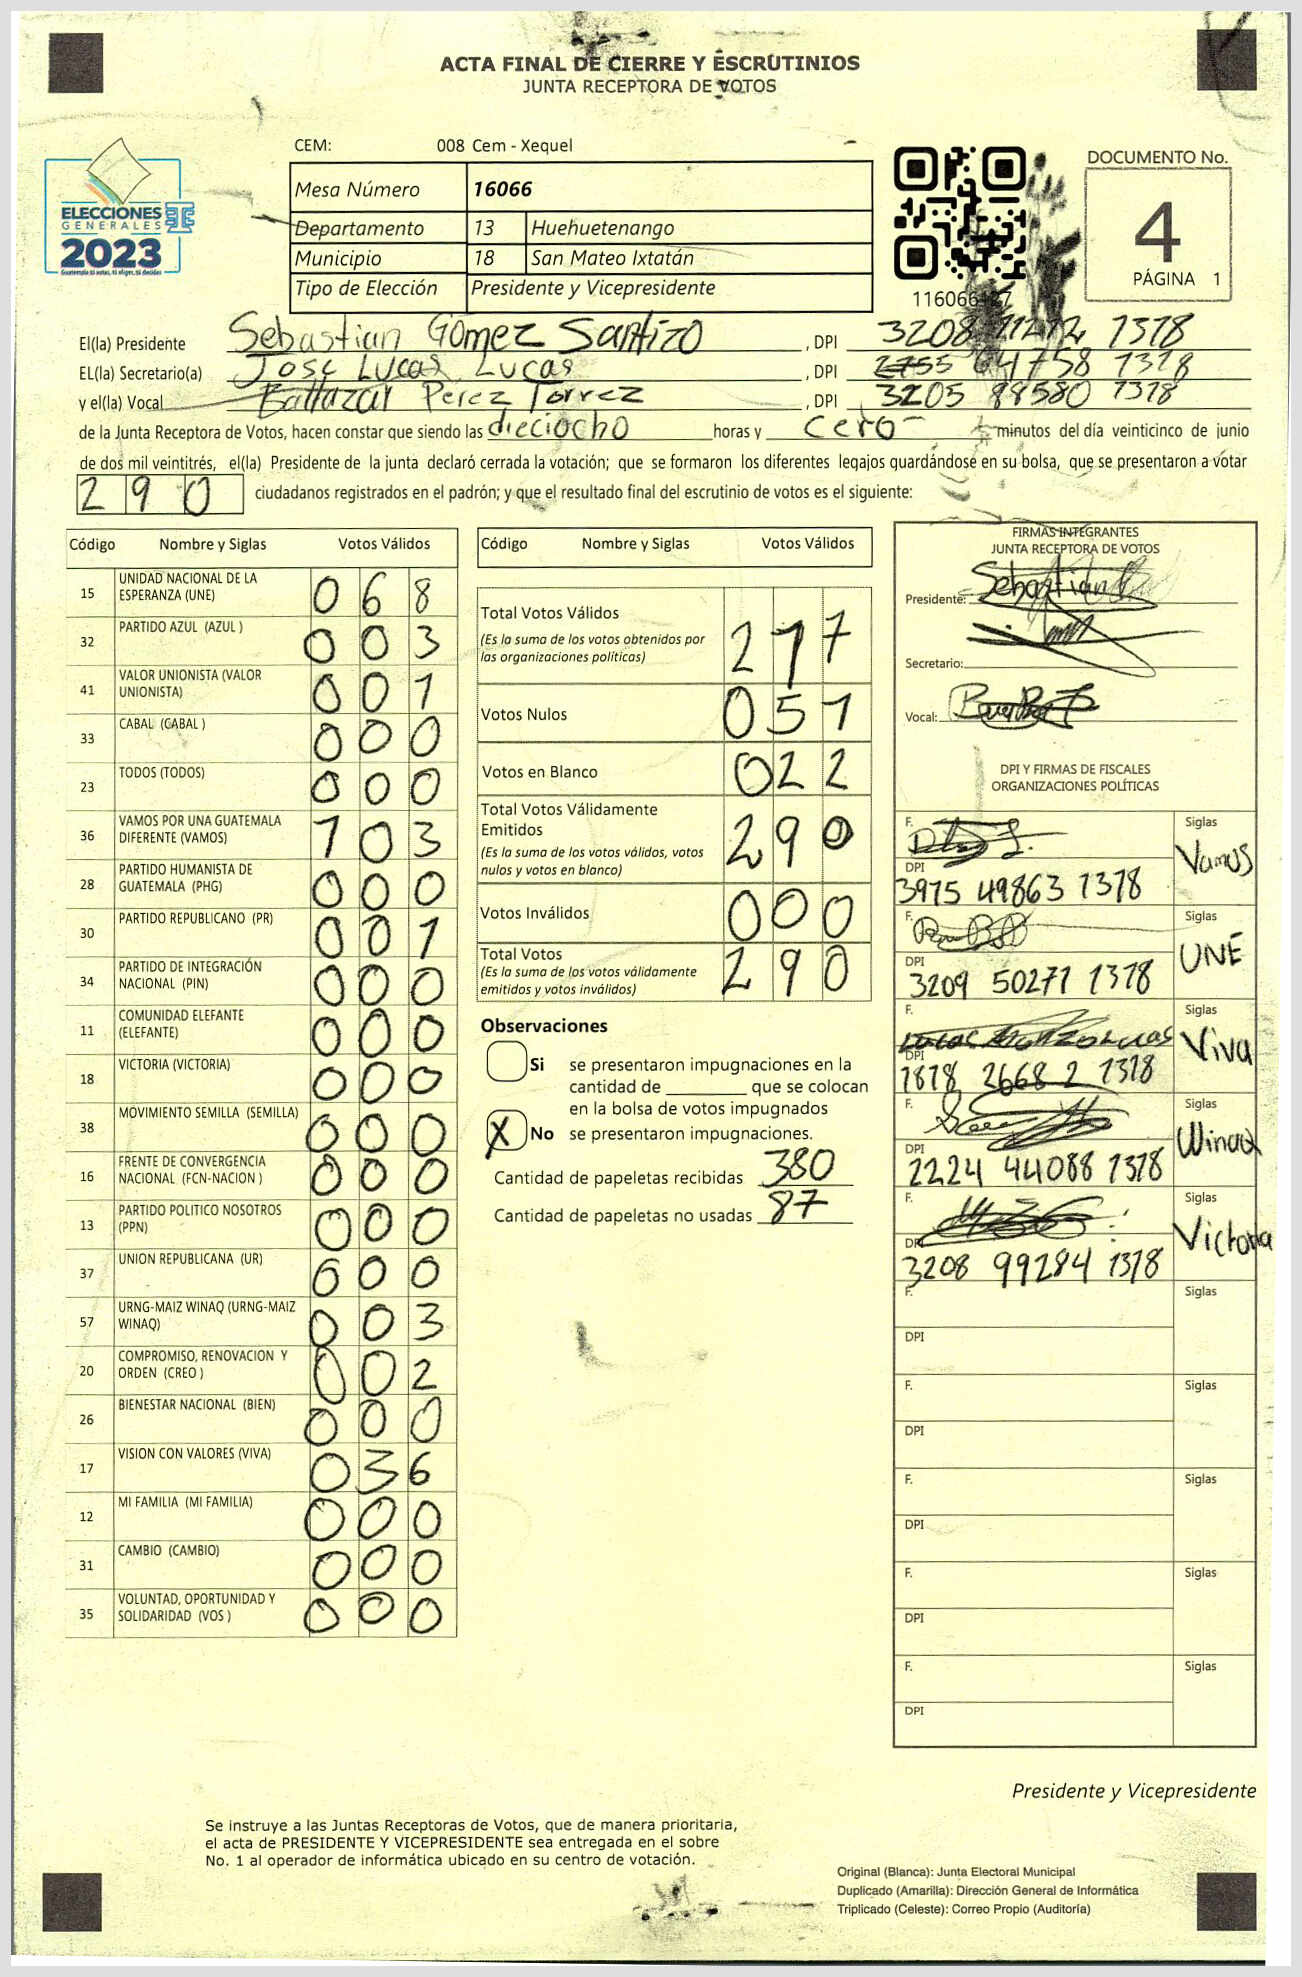 ACTA FINAL DE CIERRE Y ESCRUTINIOS
JUNTA RECEPTORA DE VOTOS
ELECCIONES
GENERALES
2023
Guatemala tú votas, tú eliges, tú decides
CEM: 008 Cem - Xequel
Mesa Número 16066
Departamento 13 Huehuetenango
Municipio 18 San Mateo Ixtatán
Tipo de Elección Presidente y Vicepresidente
DOCUMENTO No.
4
PÁGINA 1
El(la) Presidente Sebastian Gomez Santizo , DPI 3208 1378
EL(la) Secretario(a) José Lucas Lucas , DPI 2755 64758 1378
y el(la) Vocal Baltazar Perez Torrez , DPI 3205 88580 1378
de la Junta Receptora de Votos, hacen constar que siendo las dieciocho horas y cero minutos del día veinticinco de junio
de dos mil veintitrés, el(la) Presidente de la junta declaró cerrada la votación; que se formaron los diferentes legajos guardándose en su bolsa, que se presentaron a votar
290 ciudadanos registrados en el padrón; y que el resultado final del escrutinio de votos es el siguiente:
Código Nombre y Siglas Votos Válidos
15 UNIDAD NACIONAL DE LA ESPERANZA (UNE) 068
32 PARTIDO AZUL (AZUL ) 003
41 VALOR UNIONISTA (VALOR UNIONISTA) 001
33 CABAL (CABAL ) 000
23 TODOS (TODOS) 000
36 VAMOS POR UNA GUATEMALA DIFERENTE (VAMOS) 103
28 PARTIDO HUMANISTA DE GUATEMALA (PHG) 000
30 PARTIDO REPUBLICANO (PR) 001
34 PARTIDO DE INTEGRACIÓN NACIONAL (PIN) 000
11 COMUNIDAD ELEFANTE (ELEFANTE) 000
18 VICTORIA (VICTORIA) 000
38 MOVIMIENTO SEMILLA (SEMILLA) 000
16 FRENTE DE CONVERGENCIA NACIONAL (FCN-NACION ) 000
13 PARTIDO POLITICO NOSOTROS (PPN) 000
37 UNION REPUBLICANA (UR) 000
57 URNG-MAIZ WINAQ (URNG-MAIZ WINAQ) 003
20 COMPROMISO, RENOVACION Y ORDEN (CREO ) 002
26 BIENESTAR NACIONAL (BIEN) 000
17 VISION CON VALORES (VIVA) 036
12 MI FAMILIA (MI FAMILIA) 000
31 CAMBIO (CAMBIO) 000
35 VOLUNTAD, OPORTUNIDAD Y SOLIDARIDAD (VOS ) 000
Código Nombre y Siglas Votos Válidos
Total Votos Válidos 217
(Es la suma de los votos obtenidos por
las organizaciones políticas)
Votos Nulos 051
Votos en Blanco 022
Total Votos Válidamente
Emitidos 290
(Es la suma de los votos válidos, votos
nulos y votos en blanco)
Votos Inválidos 000
Total Votos 290
(Es la suma de los votos válidamente
emitidos y votos inválidos)
Observaciones
Si se presentaron impugnaciones en la
cantidad de ________ que se colocan
en la bolsa de votos impugnados
X No se presentaron impugnaciones.
Cantidad de papeletas recibidas 380
Cantidad de papeletas no usadas 87
FIRMAS INTEGRANTES
JUNTA RECEPTORA DE VOTOS
Presidente: Sebastian
Secretario:
Vocal:
DPI Y FIRMAS DE FISCALES
ORGANIZACIONES POLÍTICAS
F. Siglas Vamos
DPI 3975 49863 1378
F. Siglas UNE
DPI 3209 50271 1378
F. Siglas Viva
DPI 1878 2668 2 1378
F. Siglas Winaq
DPI 2224 44088 1378
F. Siglas Victoria
DPI 3208 99284 1378
F. Siglas
DPI
F. Siglas
DPI
F. Siglas
DPI
F. Siglas
DPI
F. Siglas
DPI
Presidente y Vicepresidente
Se instruye a las Juntas Receptoras de Votos, que de manera prioritaria,
el acta de PRESIDENTE Y VICEPRESIDENTE sea entregada en el sobre
No. 1 al operador de informática ubicado en su centro de votación.
Original (Blanca): Junta Electoral Municipal
Duplicado (Amarilla): Dirección General de Informática
Triplicado (Celeste): Correo Propio (Auditoría)